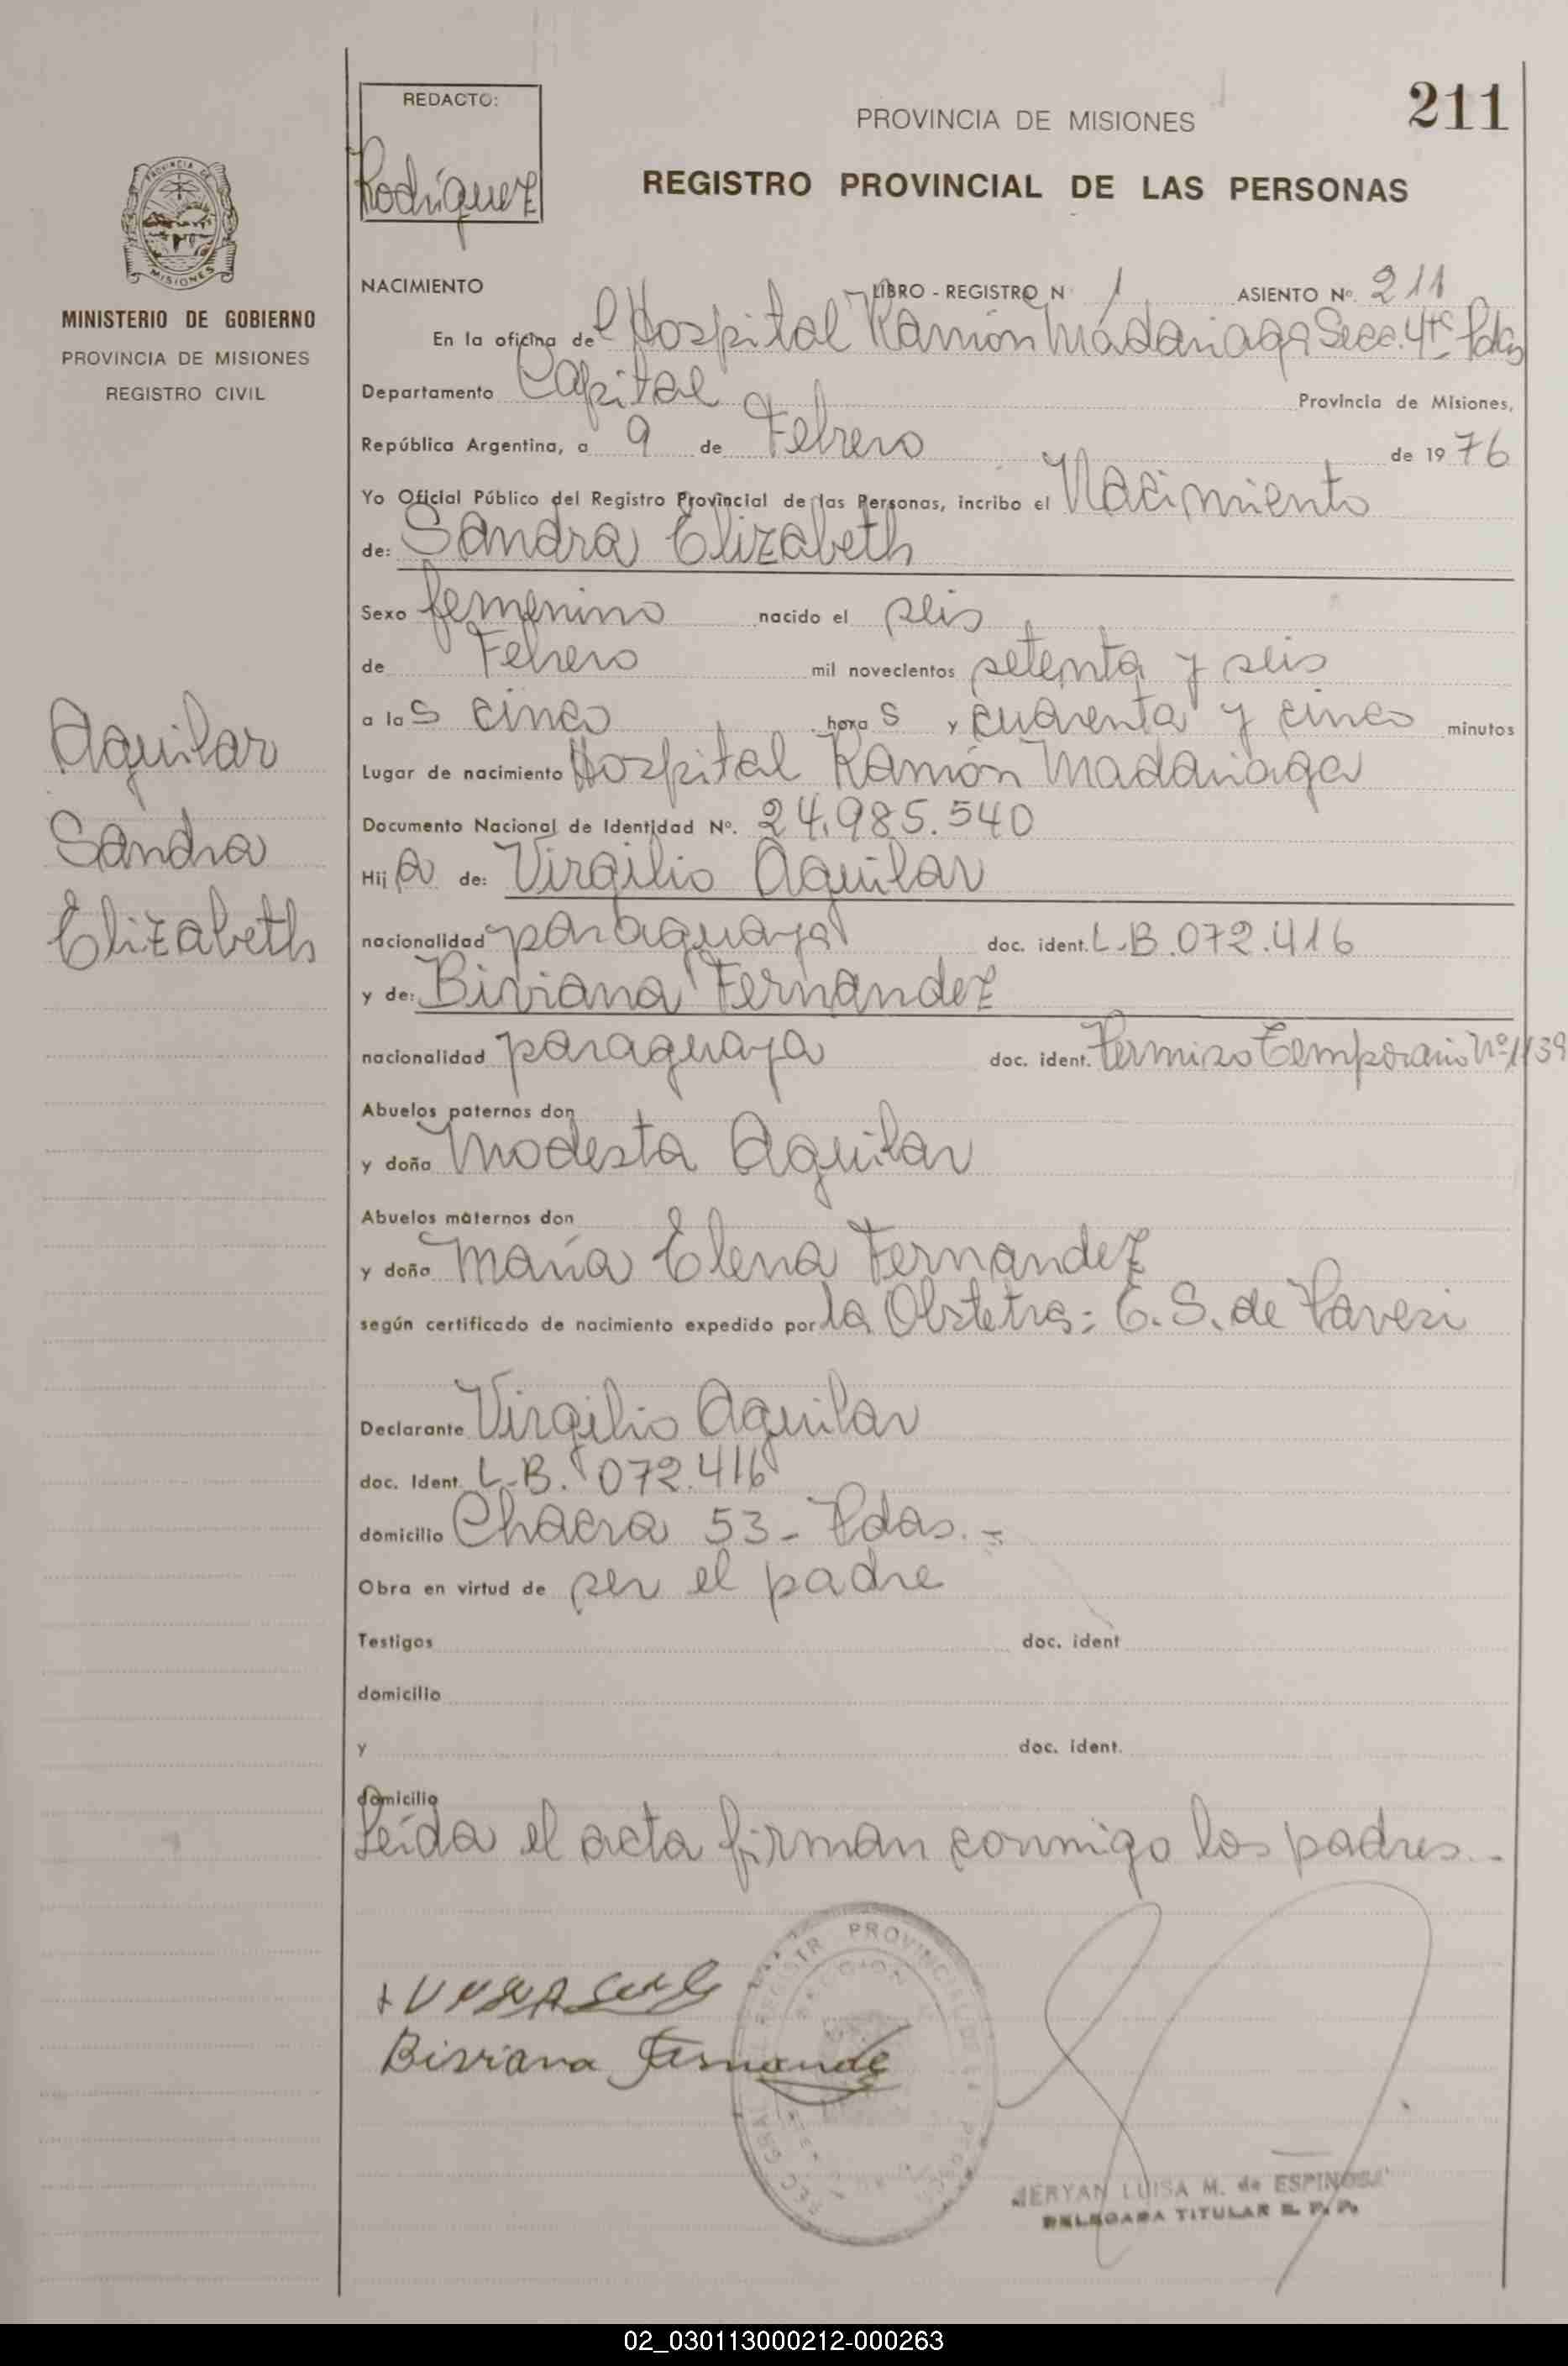 REDACTO:
Rodríguez
PROVINCIA DE MISIONES
211
REGISTRO PROVINCIAL DE LAS PERSONAS
MISIONES
MINISTERIO DE GOBIERNO
PROVINCIA DE MISIONES
REGISTRO CIVIL
NACIMIENTO LIBRO - REGISTRO N 1 ASIENTO Nº. 211
En la oficina del Hospital Ramón Madariaga Secc. 4ta Pdas
Departamento Capital Provincia de Misiones,
República Argentina, a 9 de Febrero de 1976
Yo Oficial Público del Registro Provincial de las Personas, incribo el Nacimiento
de: Sandra Elizabeth
Sexo femenino nacido el seis
de Febrero mil novecientos setenta y seis
a las cinco horas y cuarenta y cinco minutos
Lugar de nacimiento Hospital Ramón Madariaga
Documento Nacional de Identidad Nº. 24.985.540
Hija de: Virgilio Aguilar
nacionalidad paraguaya doc. ident. L.B. 072.416
y de: Biviana Fernandez
nacionalidad paraguaya doc. ident. Permiso Temporario Nº 1139
Abuelos paternos don
y doña Modesta Aguilar
Abuelos maternos don
y doña María Elena Fernandez
según certificado de nacimiento expedido por la Obstetra: E. S. de Paveri
Declarante Virgilio Aguilar
doc. Ident. L.B. 072.416
domicilio Chacra 53 - Pdas. -
Obra en virtud de ser el padre
Testigos doc. ident
domicilio
y doc. ident.
domicilio
Leída el acta firman conmigo los padres. -
Aguilar
Sandra
Elizabeth
Biviana Fernande
PROVINCIAL DE
LUISA M. de ESPINOSA
DELEGADA TITULAR R. P. P.
02_030113000212-000263